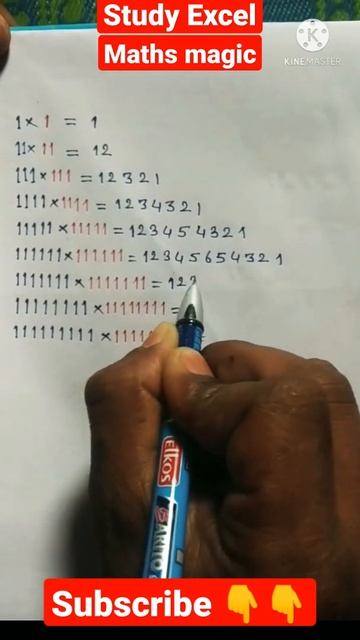 Study Excel
Maths magic
KINEMASTER
1 × 1 = 1
11 × 11 = 12
111 × 111 = 12321
1111 × 1111 = 1234321
11111 × 11111 = 123454321
111111 × 111111 = 12345654321
1111111 × 1111111 = 12
11111111 × 11111111 =
111111111 ×
elkos
Subscribe 👇👇